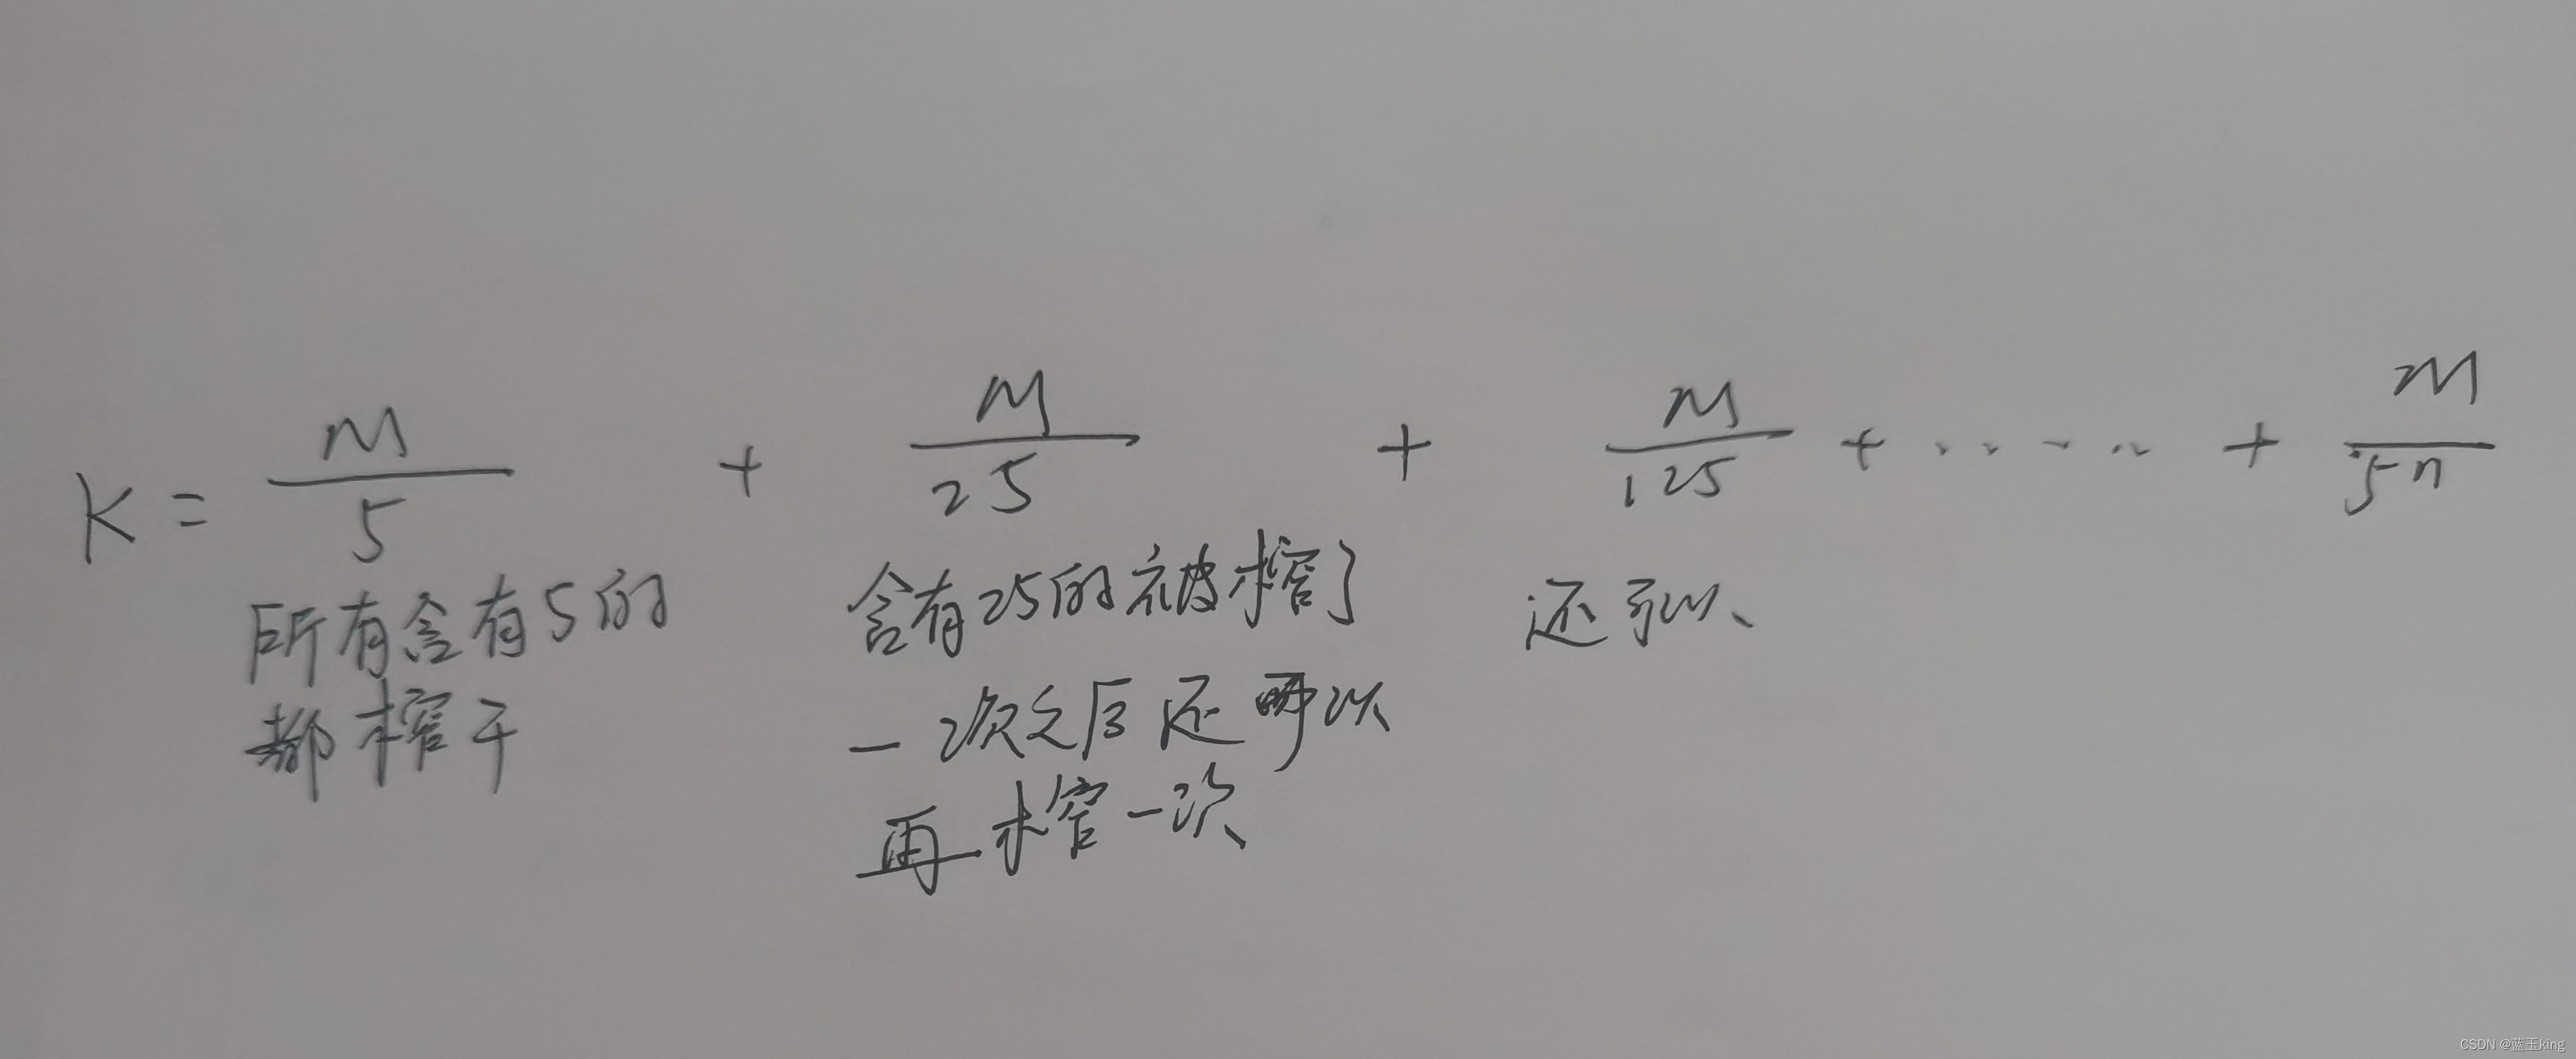 K = M/5 + M/25 + M/125 + ...... + M/5^n
所有含有5的
都榨干
含有25的被榨了
一次之后还可以
再榨一次
还可以
CSDN @蓝玉king